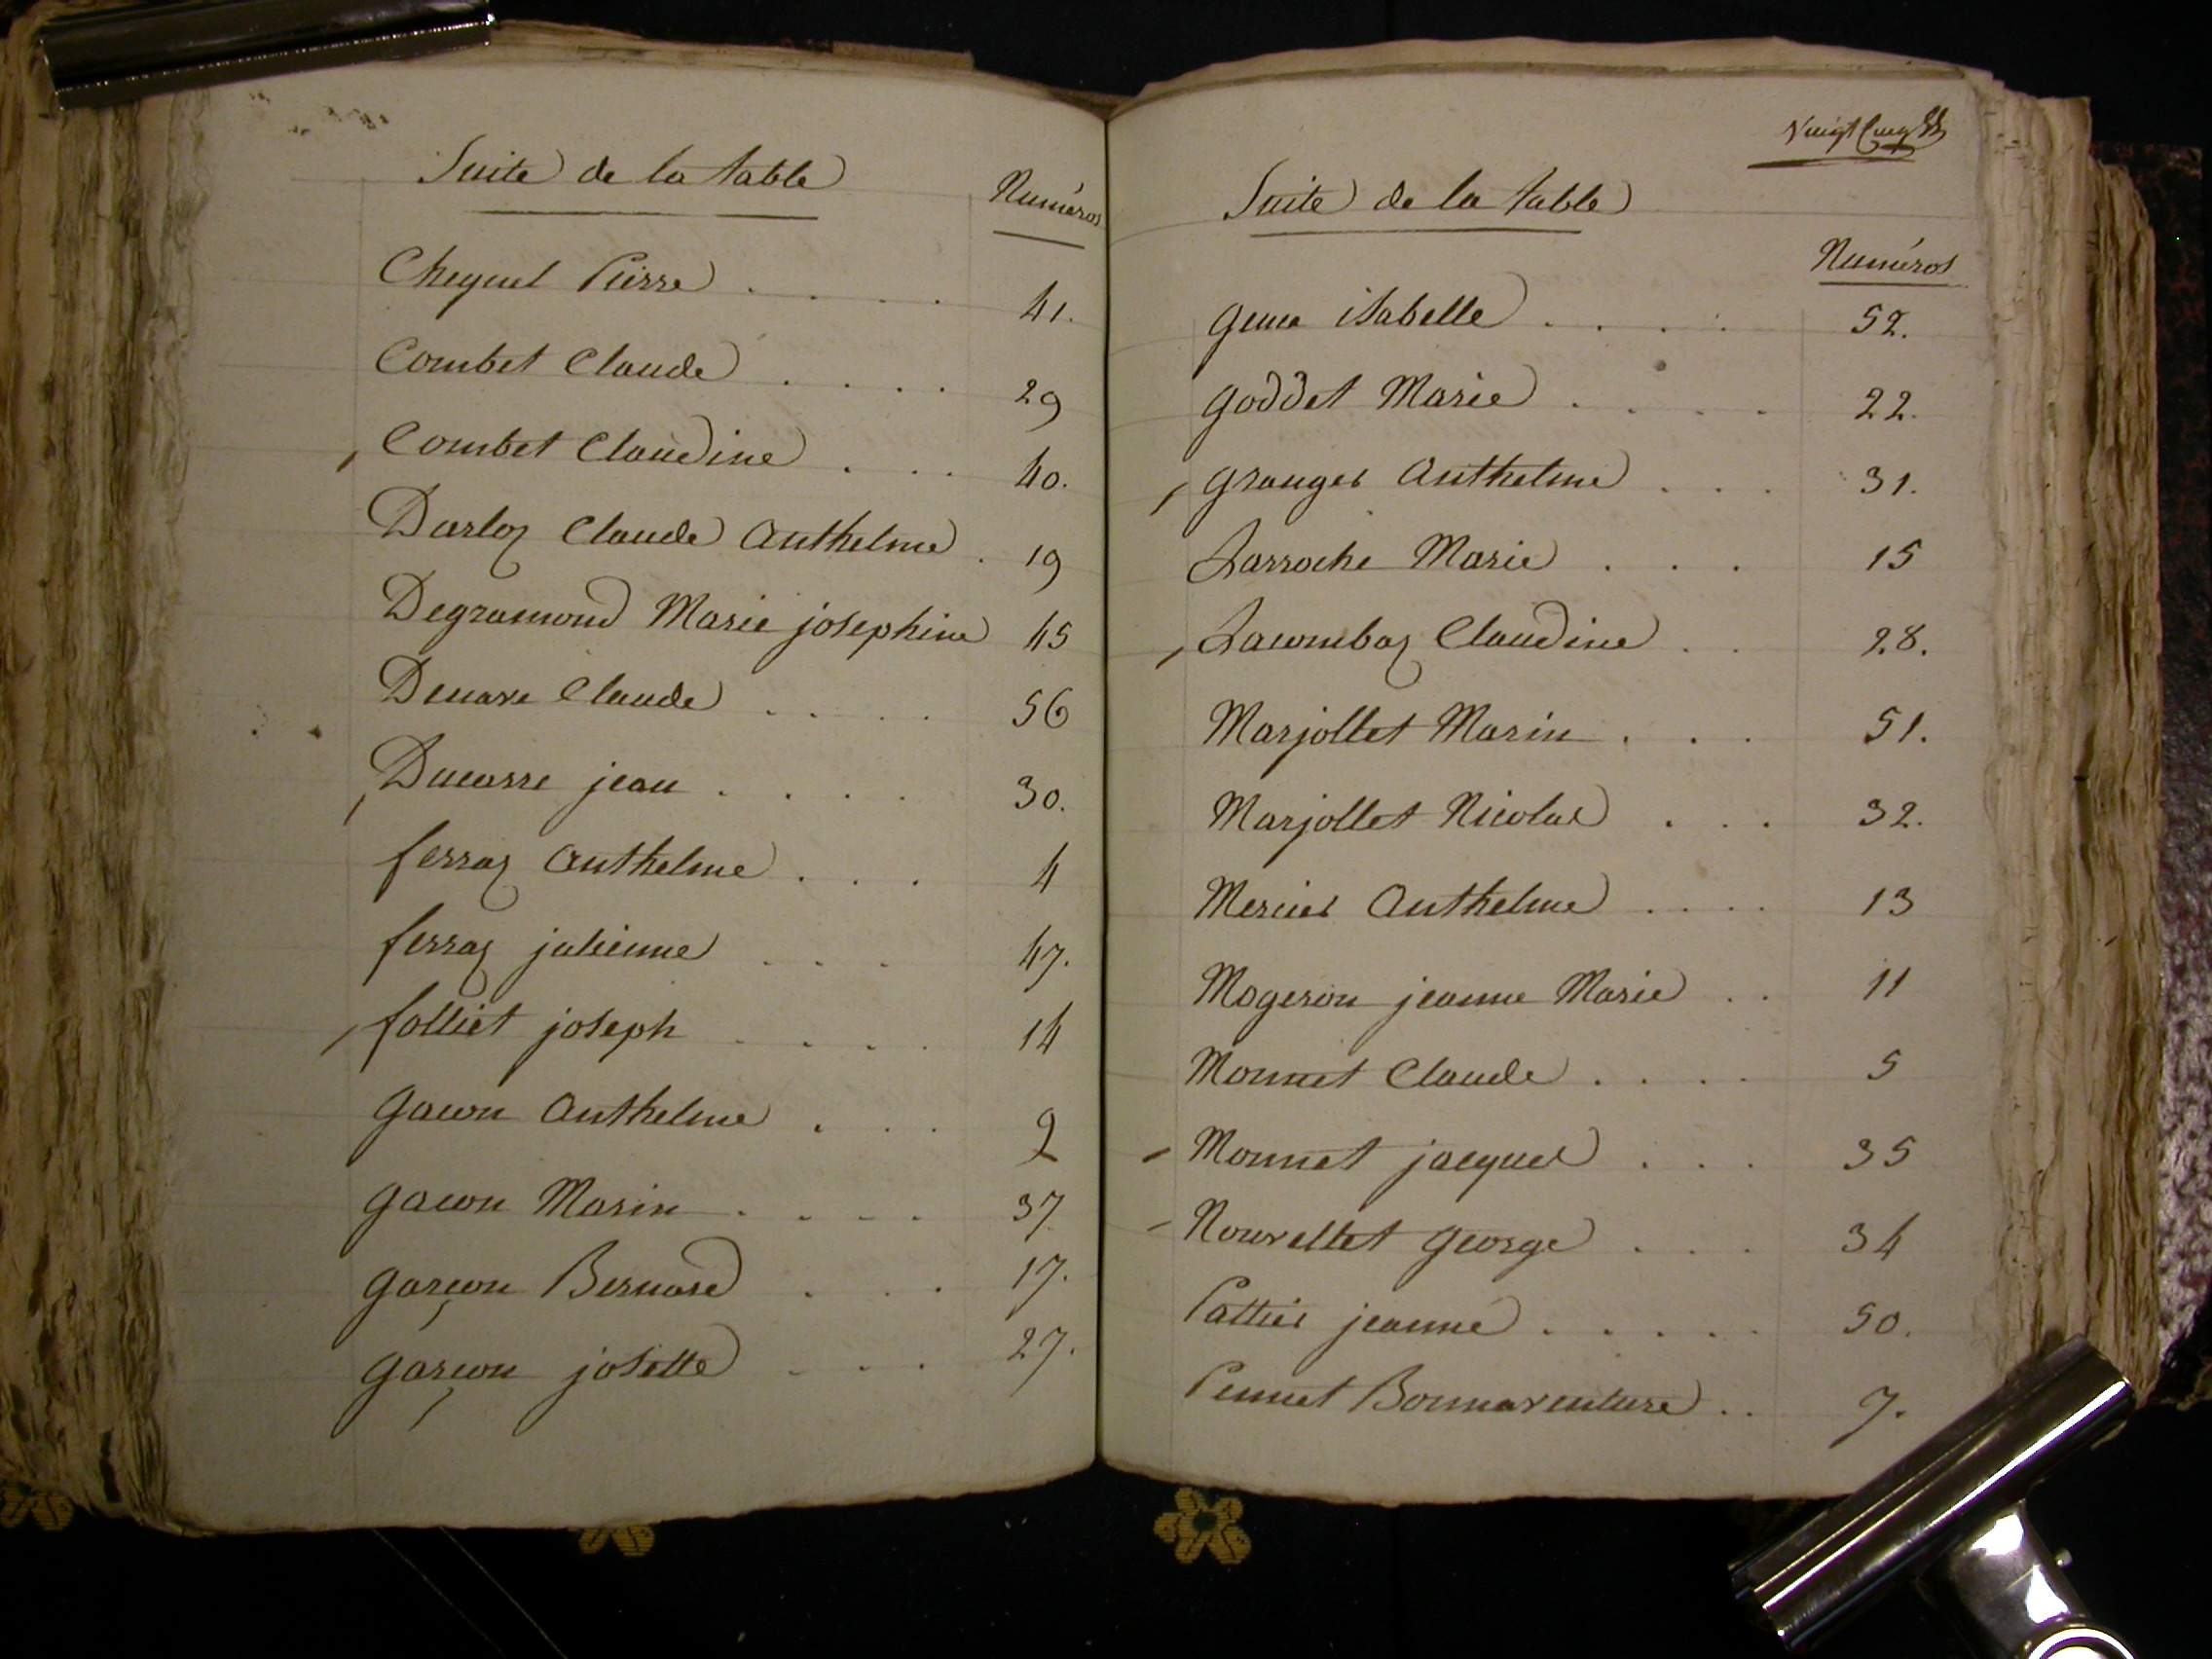 Suite de la table
Numéros
Chequel Pierre . . . . 41.
Combet Claude . . . . 29
Combet Claudine . . . 40.
Darloz Claude Anthelme . 19
Degramond Marie josephine 45
Devare Claude . . . . 56
Ducarre jean . . . . 30.
ferraz Anthelme . . . 4
ferraz julienne . . . 47.
folliet joseph . . . . 14
gacon Anthelme . . . 2
gacon Marin . . . . 37
garçon Bernard . . . 17.
garçon josette . . . 27.
Vingt Cinq
Suite de la table
Numéros
isabelle . . . . 52.
goddet Marie . . . . 22.
granger Anthelme . . . 31.
Larroche Marie . . . 15
Lacombaz Claudine . . 28.
Marjollet Marin . . . 51.
Marjollet Nicolas . . . 32.
Mercier Anthelme . . . . 13
Mogeron jeanne Marie . . 11
Monnet Claude . . . . 5
Monnet jacques . . . 35
Nouvellet george . . . 34
Pattier jeanne . . . . . 50.
Pennet Bonnaventure . . 7.